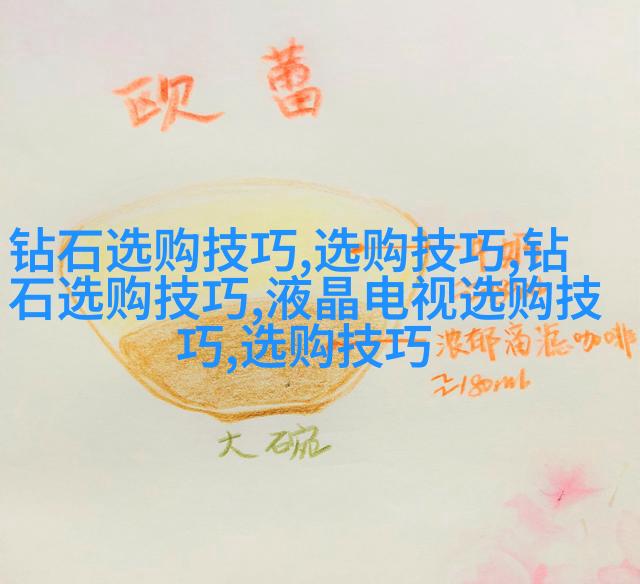 欧蕾
钻石选购技巧,选购技巧,钻
石选购技巧,液晶电视选购技
巧,选购技巧
浓郁滴滤咖啡
≥180ml
大碗